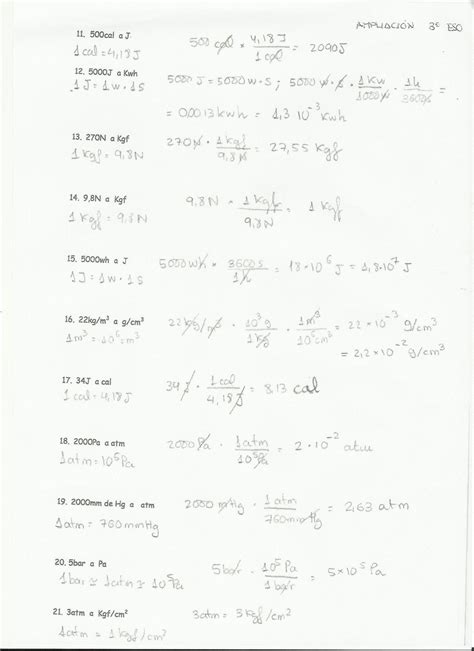 AMPLIACIÓN 3º ESO
11. 500cal a J
1 cal = 4,18J
500 cal × 4,18 J / 1 cal = 2090J
12. 5000J a Kwh
1J = 1w·1s
5000 J = 5000 w·s ; 5000 w·s · 1 Kw / 1000 w · 1h / 3600 s =
= 0,0013 kwh = 1,3 10⁻³ kwh
13. 270N a Kgf
1 Kgf = 9,8N
270 N · 1 Kgf / 9,8 N = 27,55 Kgf
14. 9,8N a Kgf
1 Kgf = 9,8N
9,8N · 1 Kgf / 9,8N = 1 Kgf
15. 5000wh a J
1J = 1w·1s
5000 wh × 3600 s / 1h = 18·10⁶ J = 1,8·10⁷ J
16. 22kg/m³ a g/cm³
1m³ = 10⁶ cm³
22 kg/m³ · 10³ g / 1 kg · 1m³ / 10⁶ cm³ = 22 × 10⁻³ g/cm³
= 2,2×10⁻² g/cm³
17. 34J a cal
1 cal = 4,18J
34 J · 1 cal / 4,18 J = 8,13 cal
18. 2000Pa a atm
1atm = 10⁵ Pa
2000 Pa · 1atm / 10⁵ Pa = 2·10⁻² atm
19. 2000mm de Hg a atm
1atm = 760mmHg
2000 mmHg · 1 atm / 760 mmHg = 2,63 atm
20. 5bar a Pa
1 bar ≃ 1atm ≃ 10⁵ Pa
5 bar · 10⁵ Pa / 1 bar = 5×10⁵ Pa
21. 3atm a Kgf/cm²
1atm = 1 kgf/cm²
3atm = 3 kgf/cm²